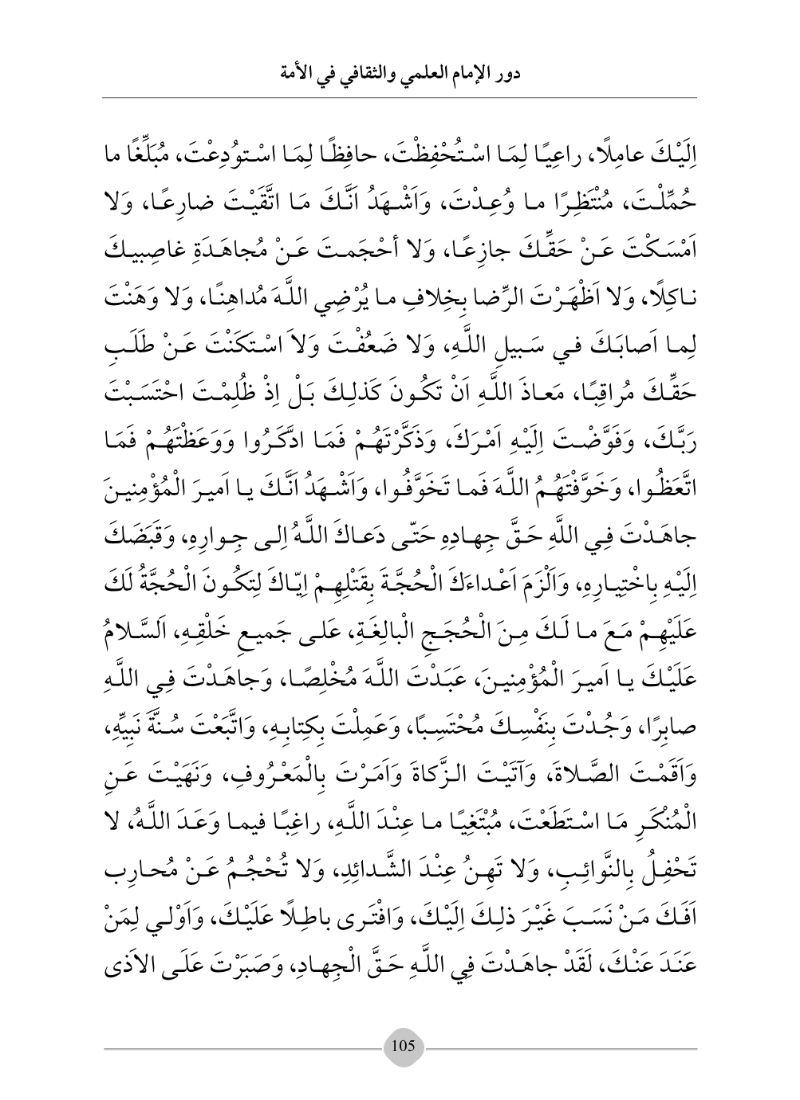 دور الإمام العلمي والثقافي في الأمة
اِلَيْكَ عامِلًا، راعِيًا لِمَا اسْتُحْفِظْتَ، حافِظًا لِمَا اسْتوُدِعْتَ، مُبَلِّغًا ما
حُمِّلْتَ، مُنْتَظِرًا ما وُعِدْتَ، وَاَشْهَدُ اَنَّكَ مَا اتَّقَيْتَ ضارِعًا، وَلا
اَمْسَكْتَ عَنْ حَقِّكَ جازِعًا، وَلا أحْجَمتَ عَنْ مُجاهَدَةِ غاصِبيكَ
ناكِلًا، وَلا اَظْهَرْتَ الرِّضا بِخِلافِ ما يُرْضِي اللَّهَ مُداهِنًا، وَلا وَهَنْتَ
لِما اَصابَكَ في سَبيلِ اللَّهِ، وَلا ضَعُفْتَ وَلاَ اسْتَكَنْتَ عَنْ طَلَبِ
حَقِّكَ مُراقِبًا، مَعاذَ اللَّهِ اَنْ تَكُونَ كَذلِكَ بَلْ اِذْ ظُلِمْتَ احْتَسَبْتَ
رَبَّكَ، وَفَوَّضْتَ اِلَيْهِ اَمْرَكَ، وَذَكَّرْتَهُمْ فَمَا ادَّكَرُوا وَوَعَظْتَهُمْ فَمَا
اتَّعَظُوا، وَخَوَّفْتَهُمُ اللَّهَ فَما تَخَوَّفُوا، وَاَشْهَدُ اَنَّكَ يا اَميرَ الْمُؤْمِنينَ
جاهَدْتَ فِي اللَّهِ حَقَّ جِهادِهِ حَتّى دَعاكَ اللَّهُ اِلى جِوارِهِ، وَقَبَضَكَ
اِلَيْهِ بِاخْتِيارِهِ، وَاَلْزَمَ اَعْداءَكَ الْحُجَّةَ بِقَتْلِهِمْ اِيّاكَ لِتَكُونَ الْحُجَّةُ لَكَ
عَلَيْهِمْ مَعَ ما لَكَ مِنَ الْحُجَجِ الْبالِغَةِ، عَلى جَميعِ خَلْقِهِ، اَلسَّلامُ
عَلَيْكَ يا اَميرَ الْمُؤْمِنينَ، عَبَدْتَ اللَّهَ مُخْلِصًا، وَجاهَدْتَ فِي اللَّهِ
صابِرًا، وَجُدْتَ بِنَفْسِكَ مُحْتَسِبًا، وَعَمِلْتَ بِكِتابِهِ، وَاتَّبَعْتَ سُنَّةَ نَبِيِّهِ،
وَاَقَمْتَ الصَّلاةَ، وَآتَيْتَ الزَّكاةَ وَاَمَرْتَ بِالْمَعْرُوفِ، وَنَهَيْتَ عَنِ
الْمُنْكَرِ مَا اسْتَطَعْتَ، مُبْتَغِيًا ما عِنْدَ اللَّهِ، راغِبًا فيما وَعَدَ اللَّهُ، لا
تَحْفِلُ بِالنَّوائِبِ، وَلا تَهِنُ عِنْدَ الشَّدائِدِ، وَلا تُحْجُمُ عَنْ مُحارِب
اَفَكَ مَنْ نَسَبَ غَيْرَ ذلِكَ اِلَيْكَ، وَافْتَرى باطِلًا عَلَيْكَ، وَاَوْلى لِمَنْ
عَنَدَ عَنْكَ، لَقَدْ جاهَدْتَ فِي اللَّهِ حَقَّ الْجِهادِ، وَصَبَرْتَ عَلَى الاَذى
105